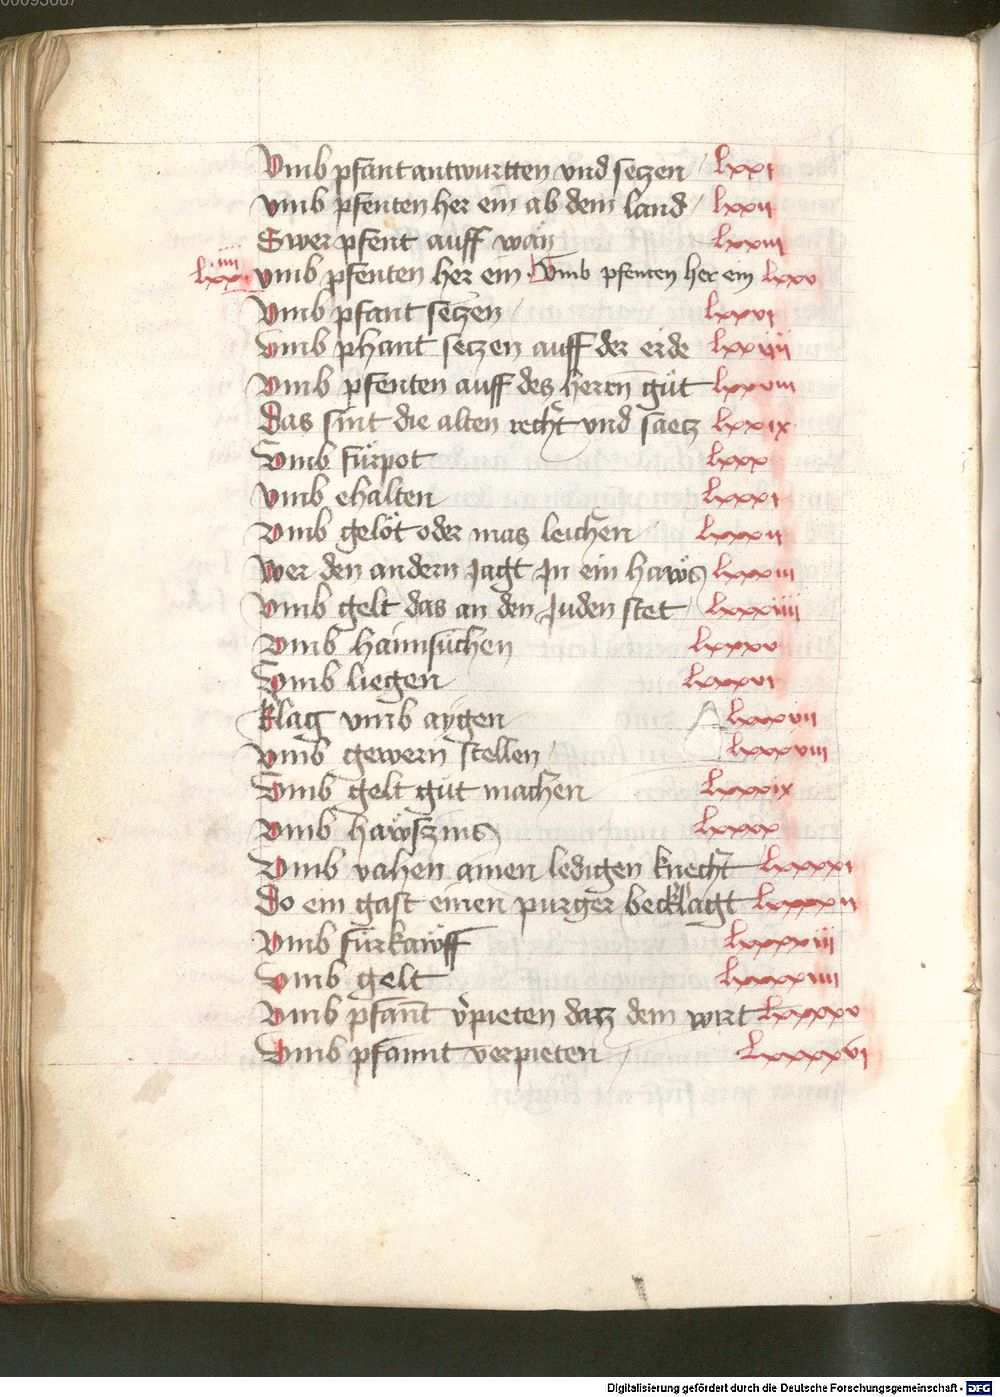 00093667
Vmb pfant antwurtten vnd seczen lxxi
vmb pfenten her ein ab dem land lxxii
Swer pfent auff wän lxxiii
lxxiiii vmb pfenten her ein Vmb pfenten her ein lxxv
Vmb pfant seczen lxxvi
vmb phant seczen auff der erde lxxvii
Vmb pfenten auff des herren güt lxxviii
Das sint die alten recht vnd säcz lxxix
Vmb fürpot lxxx
Vmb ehalten lxxxi
Vmb gelöt oder mas leichen lxxxii
Wer den andern Jagt Jn ein haws lxxxiii
Vmb gelt das an den Juden stet lxxxiiii
Vmb haimsuchen lxxxv
Vmb liegen lxxxvi
klag vmb aygen lxxxvii
vmb gewern stellen lxxxviii
Vmb gelt güt machen lxxxix
Vmb hawszins lxxxx
Vmb vahen ainen ledigen knecht lxxxxi
Do ein gast einen purger becklagt lxxxxii
Vmb fürkäwff lxxxxiii
vmb gelt lxxxxiiii
Vmb pfant v̾pieten dacz dem wirt lxxxxv
Vmb pfannt verpieten lxxxxvi
Digitalisierung gefördert durch die Deutsche Forschungsgemeinschaft - DFG